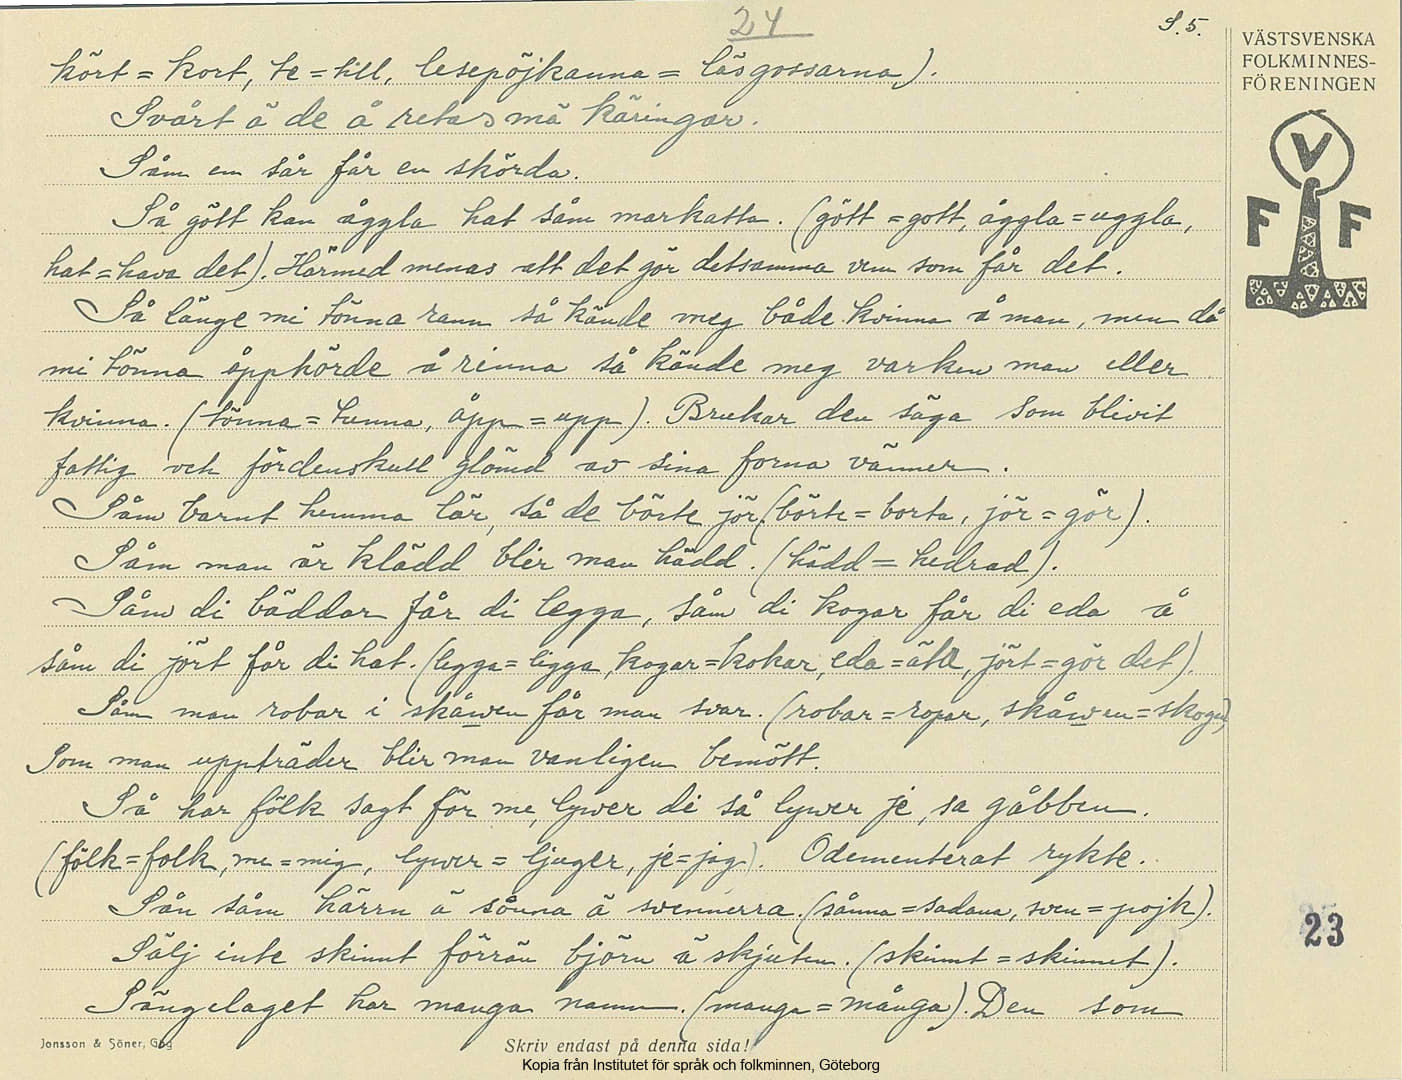 24
S. 5.
VÄSTSVENSKA
FOLKMINNES-
FÖRENINGEN
V
F F
kört = kort, te = till, lesepöjkanna = läsgossarna).
Svårt ä de å retas mä käringar.
Såm en sår får en skörda.
Så gött kan åggla hat såm markatta. (gött = gott, åggla = uggla,
hat = hava det). Härmed menas att det gör detsamma vem som får det.
Så länge mi tönna rann så kände meg både kvinna å man, men då
mi tönna åpphörde å rinna så kände meg varken man eller
kvinna. (tönna = tunna, åpp = upp). Brukar den säga som blivit
fattig och fördenskull glömd av sina forna vänner.
Såm barnt hemma lär, så de börte jör. (börte = borta, jör = gör).
Såm man är klädd blir man hädd. (hädd = hedrad).
Såm di bäddar får di legga, såm di kogar får di eda å
såm di jört får di hat. (legga = ligga, kogar = kokar, eda = äta, jört = gör det).
Såm man robar i skåwen får man svar. (robar = ropar, skåwen = skogen)
Som man uppträder blir man vanligen bemött.
Så har fölk sagt för me, lywer di så lywer je, sa gåbben.
(fölk = folk, me = mig, lywer = ljuger, je = jag). Odementerat rykte.
Sån såm härrn ä sånna ä svennerra. (sånna = sadana, sven = pojk).
Sälj inte skinnt förrän björn ä skjuten. (skinnt = skinnet).
Sängelaget har manga namn. (manga = många). Den som
23
Jonsson & Söner, Gbg
Skriv endast på denna sida!
Kopia från Institutet för språk och folkminnen, Göteborg